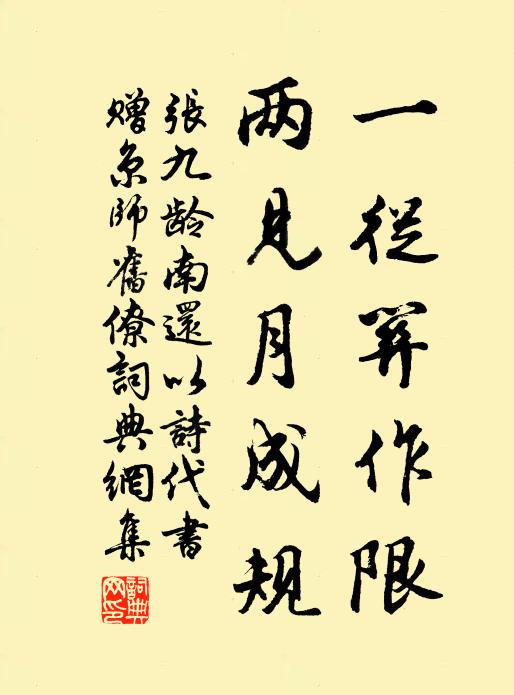 一從關作限
两見月成規
張九龄南還以詩代書
贈京師舊僚詞典網集
詞典
网印